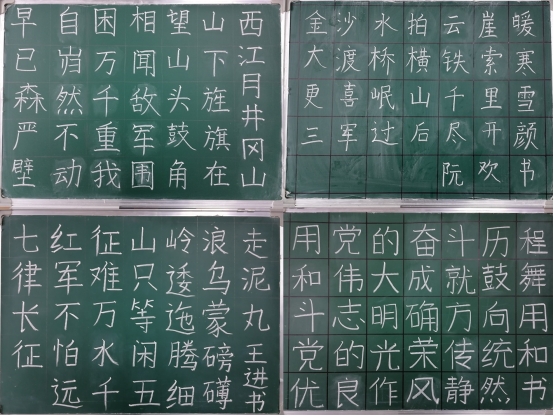 西江月井冈山
山下旌旗在
望山头鼓角
相闻敌军围
困万千重我
自岿然不动
早已森严壁
金沙水拍云崖暖
大渡桥横铁索寒
更喜岷山千里雪
三军过后尽开颜
阮欢书
七律长征
红军不怕远
征难万水千
山只等闲五
岭逶迤腾细
浪乌蒙磅礴
走泥丸王进书
用党的奋斗历程
和伟大成就鼓舞
斗志明确方向用
党的光荣传统和
优良作风静然书